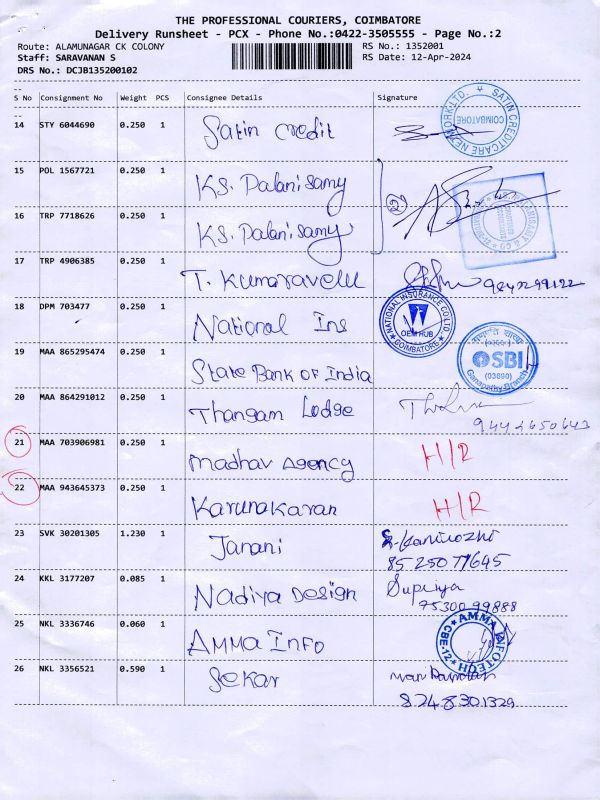 THE PROFESSIONAL COURIERS, COIMBATORE
Delivery Runsheet - PCX - Phone No.:0422-3505555 - Page No.:2
Route: ALAMUNAGAR CK COLONY RS No.: 1352001
Staff: SARAVANAN S RS Date: 12-Apr-2024
DRS No.: DCJB135200102
S No Consignment No Weight PCS Consignee Details Signature
14 STY 6044690 0.250 1 Satin credit
SATIN CREDITCARE NETWORK LTD. COIMBATORE
15 POL 1567721 0.250 1 KS. Palanisamy
16 TRP 7718626 0.250 1 KS. Palanisamy
17 TRP 4906385 0.250 1 T. Kumaravelu
18 DPM 703477 0.250 1 National Ins
NATIONAL INSURANCE CO LTD. OEM HUB COIMBATORE
19 MAA 865295474 0.250 1 State Bank of India
SBI (03890) Ganapathy Branch
20 MAA 864291012 0.250 1 Thangam Lodge
9442650643
21 MAA 703906981 0.250 1 Madhav Agency H/R
22 MAA 943645373 0.250 1 Karunakaran H/R
23 SVK 30201305 1.230 1 Janani
8525071645
24 KKL 3177207 0.085 1 Nadiya Design Supriya
9530099888
25 NKL 3336746 0.060 1 AMMA INFO
AMMA INFOTECH CBE-12
26 NKL 3356521 0.590 1 Sekar
8248301329